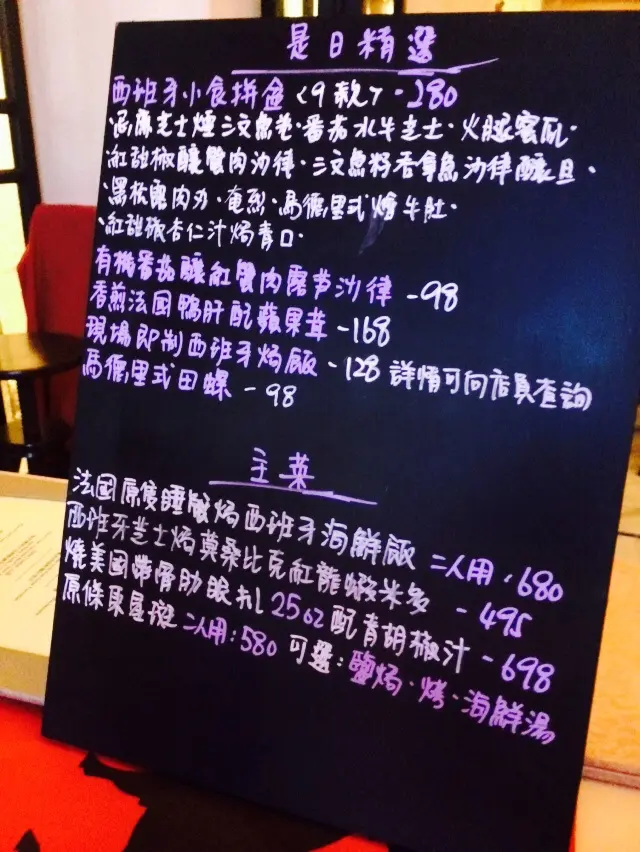 是日精選
西班牙小食拼盆<9款> - 280
芝士煙三文魚卷·番茄水牛芝士·火腿蜜瓜·
紅甜椒釀蟹肉沙律·三文魚籽吞拿魚沙律釀旦·
黑松露肉丸·奄列·馬德里式燴牛肚·
紅甜椒杏仁汁焗青口·
有機番茄釀紅蟹肉露芛沙律 -98
香煎法國鴨肝配蘋果茸 -168
現場即制西班牙焗飯 -128 詳情可向店員查詢
馬德里式田螺 - 98
主菜
法國原隻睡龍焗西班牙海鮮飯 二人用·680
西班牙芝士焗莫桑比克紅龍蝦米多 - 495
燒美國帶骨肋眼扒25oz配青胡椒汁 - 698
原條東星班 二人用:580 可選:鹽焗·烤·海鮮湯